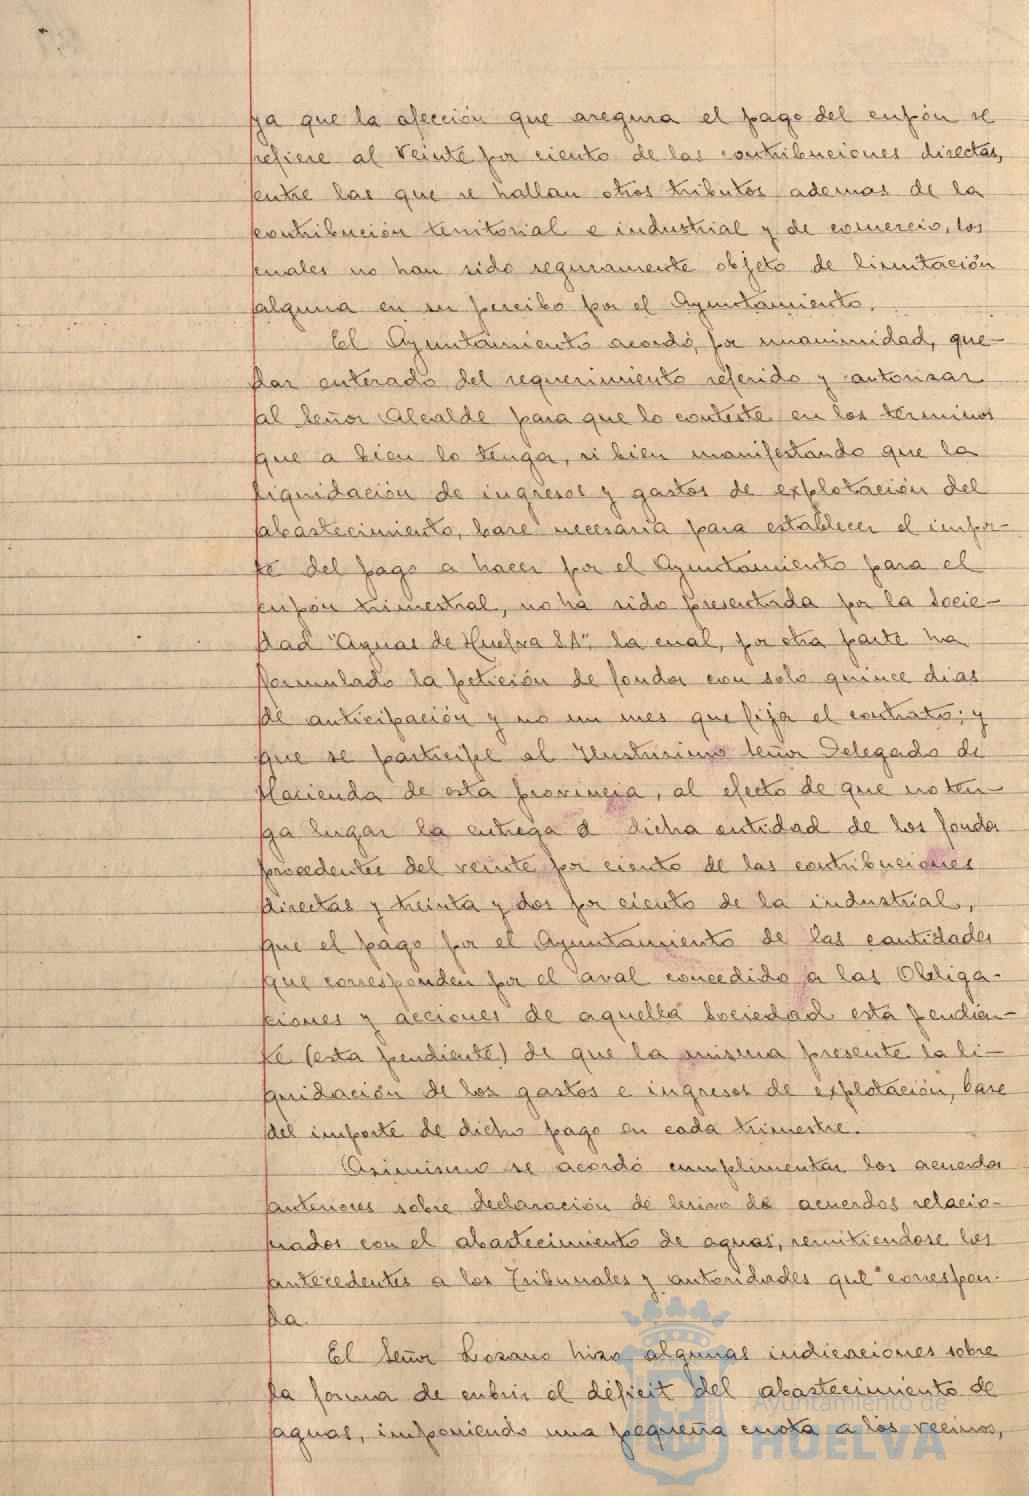 ya que la afección que asegura el pago del cupón se
refiere al veinte por ciento de las contribuciones directas,
entre las que se hallan otros tributos ademas de la
contribución territorial e industrial y de comercio, los
cuales no han sido seguramente objeto de limitación
alguna en su percibo por el Ayuntamiento.
El Ayuntamiento acordó, por unanimidad, que-
dar enterado del requerimiento referido y autorizar
al Señor Alcalde para que lo conteste en los términos
que a bien lo tenga, si bien manifestando que la
liquidación de ingresos y gastos de explotación del
abastecimiento, base necesaria para establecer el impor-
te del pago a hacer por el Ayuntamiento para el
cupón trimestral, no ha sido presentada por la Socie-
dad "Aguas de Huelva S.A", la cual, por otra parte ha
formulado la petición de fondos con solo quince dias
de anticipación y no un mes que fija el contrato; y
que se participe al Ilustrisimo Señor Delegado de
Hacienda de esta provincia, al efecto de que no ten-
ga lugar la entrega a dicha entidad de los fondos
procedentes del veinte por ciento de las contribuciones
directas y treinta y dos por ciento de la industrial,
que el pago por el Ayuntamiento de las cantidades
que corresponden por el aval concedido a las Obliga-
ciones y acciones de aquella Sociedad está pendien-
te (esta pendiente) de que la misma presente la li-
quidación de los gastos e ingresos de explotación, base
del importe de dicho pago en cada trimestre.
Asimismo se acordó cumplimentar los acuerdos
anteriores sobre declaración de lesivo de acuerdos relacio-
nados con el abastecimiento de aguas, remitiendose los
antecedentes a los Tribunales y autoridades que correspon-
da.
El Señor Lozano hizo algunas indicaciones sobre
la forma de cubrir el déficit del abastecimiento de
aguas, imponiendo una pequeña cuota a los vecinos,
Ayuntamiento de
HUELVA